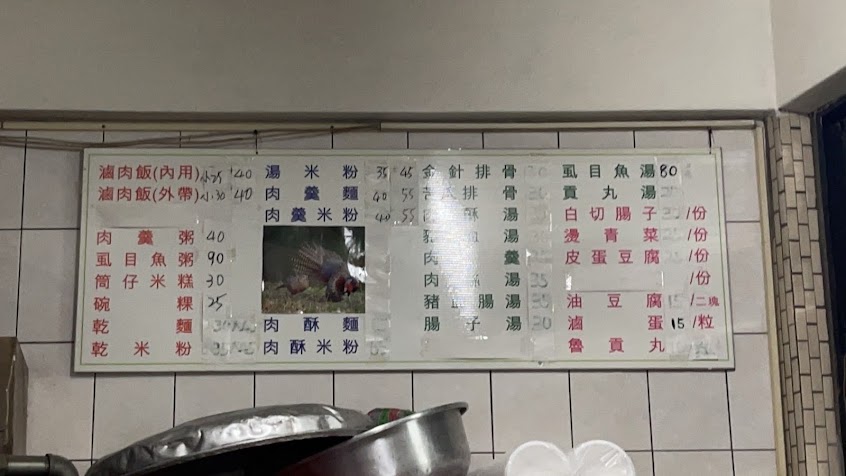 滷肉飯(內用) 小25 40
滷肉飯(外帶) 小30 40
肉羹粥 40
虱目魚粥 90
筒仔米糕 30
碗粿 25
乾麵
乾米粉
湯米粉 35 45
肉羹麵 40 55
肉羹米粉 40 55
肉酥麵
肉酥米粉
金針排骨
排骨
酥湯
豬湯
肉羹
肉湯 35
豬腸湯
腸子湯 30
虱目魚湯 80
貢丸湯
白切腸子 /份
燙青菜 /份
皮蛋豆腐
/份
油豆腐 15/二塊
滷蛋 15/粒
魯貢丸